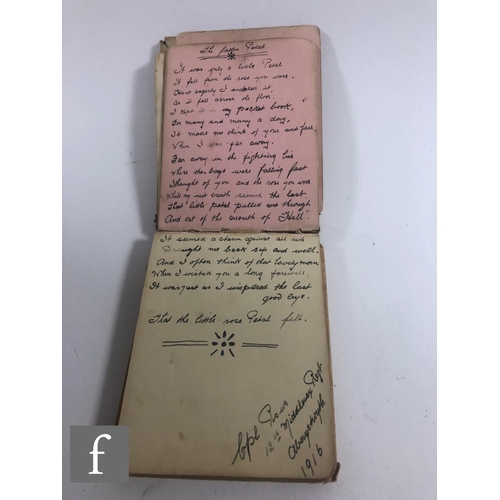 The fallen Petal
It was only a little Petal
It fell from the rose you wore.
But eagerly I
As it fell across the floor,
I kept it in my pocket book,
For many and many a day,
It made me think of your sweet face,
When I was far away.
Far away in the fighting line
where the boys were falling fast
I thought of you and the rose you wore
While my next breath seemed the last.
That little petal pulled me through
And out of the mouth of Hell
It seemed a charm against all
Brought me back safe and well.
And I often think of that lovely morn
When I wished you a long farewell
It was just as I wispered the last
good bye.
That the little rose Petal fell.
Cpl
12th Middlesex Regt
Aberystwyth
1916
f